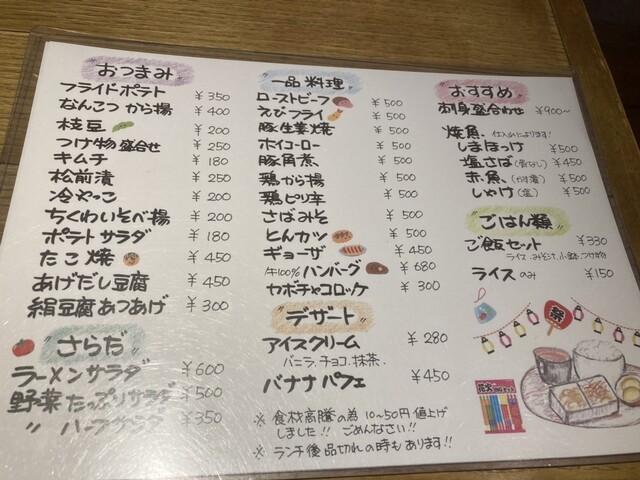 おつまみ
フライドポテト ¥350
なんこつから揚 ¥400
枝豆 ¥200
つけ物盛合せ ¥250
キムチ ¥180
松前漬 ¥250
冷やっこ ¥200
ちくわいそべ揚 ¥200
ポテトサラダ ¥180
たこ焼 ¥450
あげだし豆腐 ¥450
絹豆腐あつあげ ¥300
さらだ
ラーメンサラダ ¥600
野菜たっぷりサラダ ¥500
〃 ハーフサラダ ¥350
一品料理
ローストビーフ ¥500
えびフライ ¥500
豚生姜焼 ¥500
ホイコーロー ¥500
豚角煮 ¥500
鶏から揚 ¥500
鶏ピリ辛 ¥500
さばみそ ¥500
とんカツ ¥500
ギョーザ ¥450
牛100%ハンバーグ ¥680
カボチャコロッケ ¥300
デザート
アイスクリーム ¥280
バニラ、チョコ、抹茶
バナナパフェ ¥450
※食材高騰の為10~50円値上げ
しました!! ごめんなさい!!
※ランチ後品切れの時もあります!!
おすすめ
刺身盛合わせ ¥900~
焼魚 仕入れによります!
しまほっけ ¥500
塩さば(骨なし) ¥450
赤魚(かす漬) ¥500
しゃけ(塩) ¥500
ごはん類
ご飯セット ¥330
ライス、みそ汁、小鉢、つけ物
ライスのみ ¥150
祭
花火